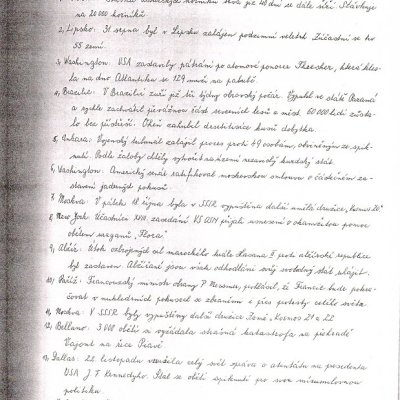 na 20 000 horníků.
2, Lipsko: 31 srpna byl v Lipsku zahájen podzimní veletrh. Zúčastní se ho
55 zemí.
3, Washington: USA zastavily pátrání po atomové ponorce Thresher, která kles-
la na dno Atlantiku se 129 muži na palubě.
4, Brazilie: V Brazilii zuří již tři týdny obrovský požár. Vypukl ve státě Paraná
a rychle zachvátil převážnou část severních lesů a měst. 60 000 lidí zůsta-
lo bez přístřeší. Oheň zahubil desetitisíce kusů dobytka.
5, Ankara: Vojenský tribunál zahájil proces proti 49 osobám, obviněným ze spik-
nutí. Podle žaloby chtěly vytvořit na území nezávislý kurdský stát.
6, Washington: Americký senát ratifikoval moskevskou smlouvu o částečném za-
stavení jaderných pokusů.
7, Moskva: V pátek 18 října byla v SSSR vypuštěna další umělá družice, "Kosmos 20"
8, New York: Účastníci XVIII. zasedání VS OSN přijali usnesení o okamžitou pomoc
obětem uragánu "Flora"
9, Alžír: Útok ozbrojených sil marockého krále Hassana II proti alžírské republice
byl zastaven. Alžířané jsou však odhodláni svůj svobodný stát hájit.
10, Paříž: Francouzský ministr obrany P. Messmer, prohlásil, že Francie bude pokra-
čovat v nukleárních pokusech se zbraněmi i přes protesty celého světa.
11, Moskva: V SSSR byly vypuštěny další družice Země, Kosmos 21 a 22
12, Belluno: 3 000 obětí si vyžádala strašná katastrofa na přehradě
Vajont na řece Piavě.
13, Dallas: 22. listopadu vzrušila celý svět zpráva o atentátu na presidenta
USA J. F. Kennedyho. Stal se obětí spiknutí pro svou mírumilovnou
politiku.